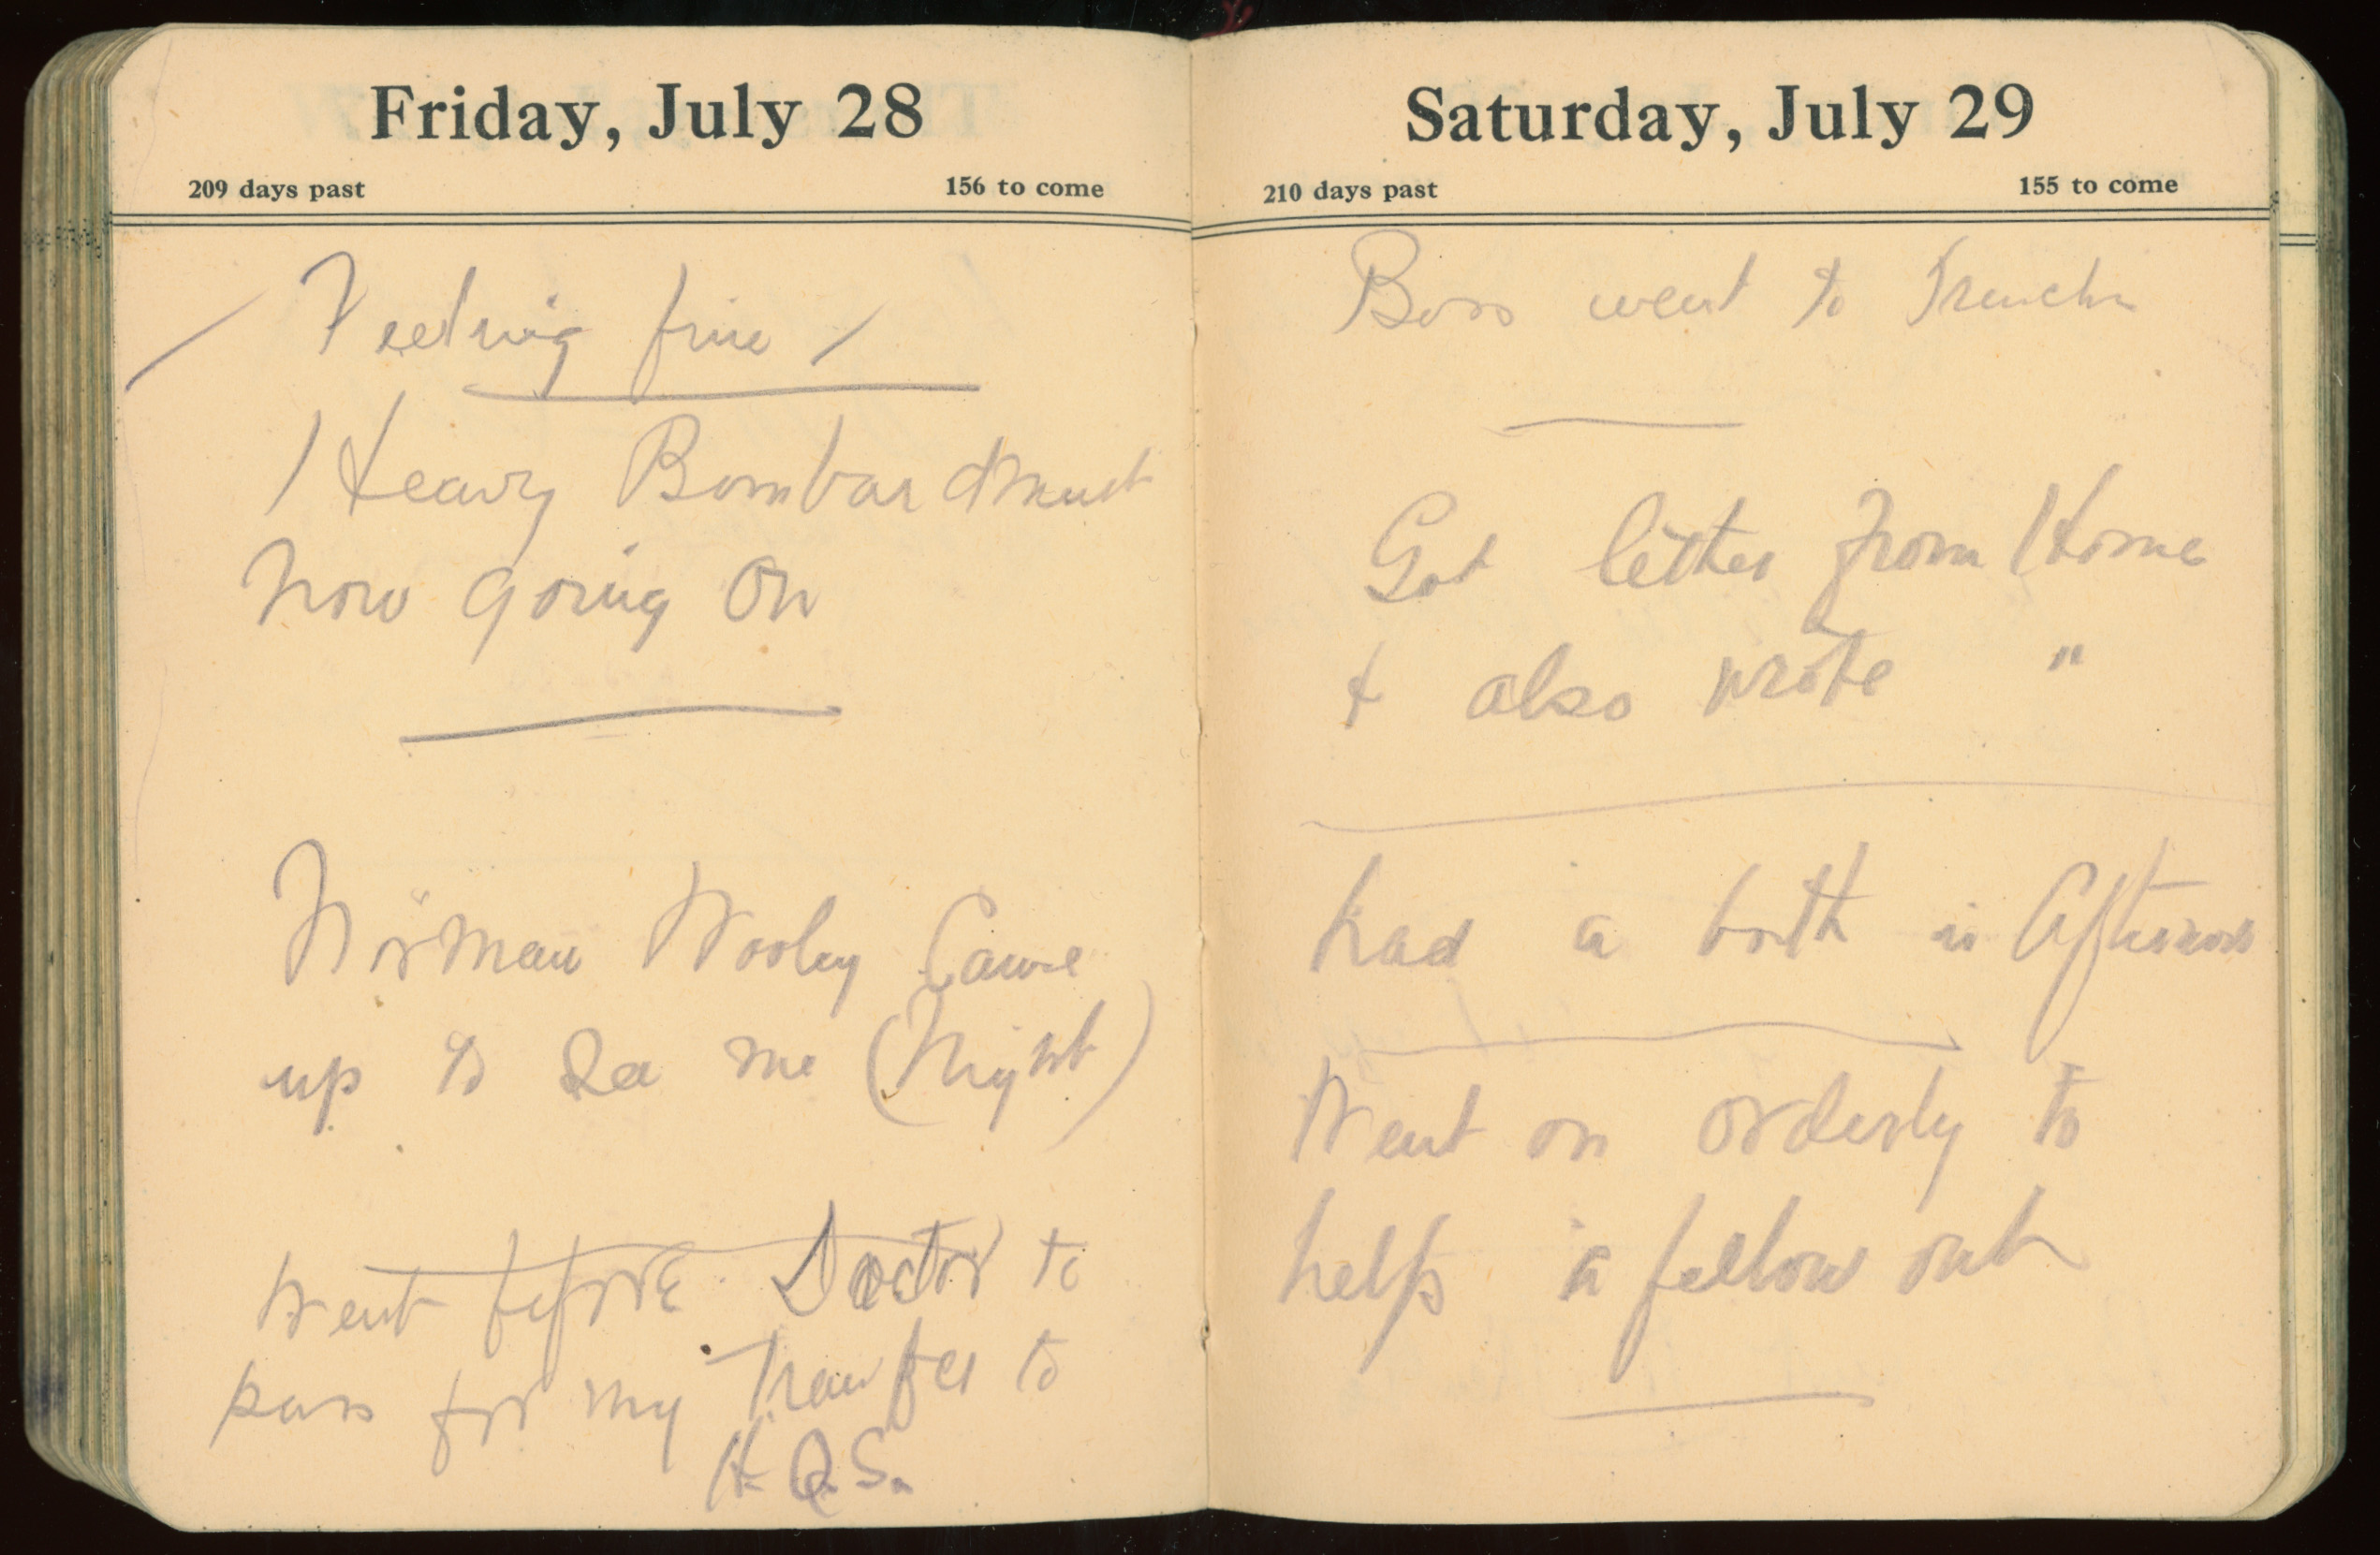 Friday, July 28
209 days past 156 to come
Feeling fine
Heavy Bombardment
now going on
Norman Wooley Came
up to See me (Night)
Went before Doctor to
pass for my Transfer to
H.Q.S.
Saturday, July 29
210 days past 155 to come
Boss went to
Got letter from Home
& also wrote "
had a bath in Afternoon
Went on orderly to
help a fellow out